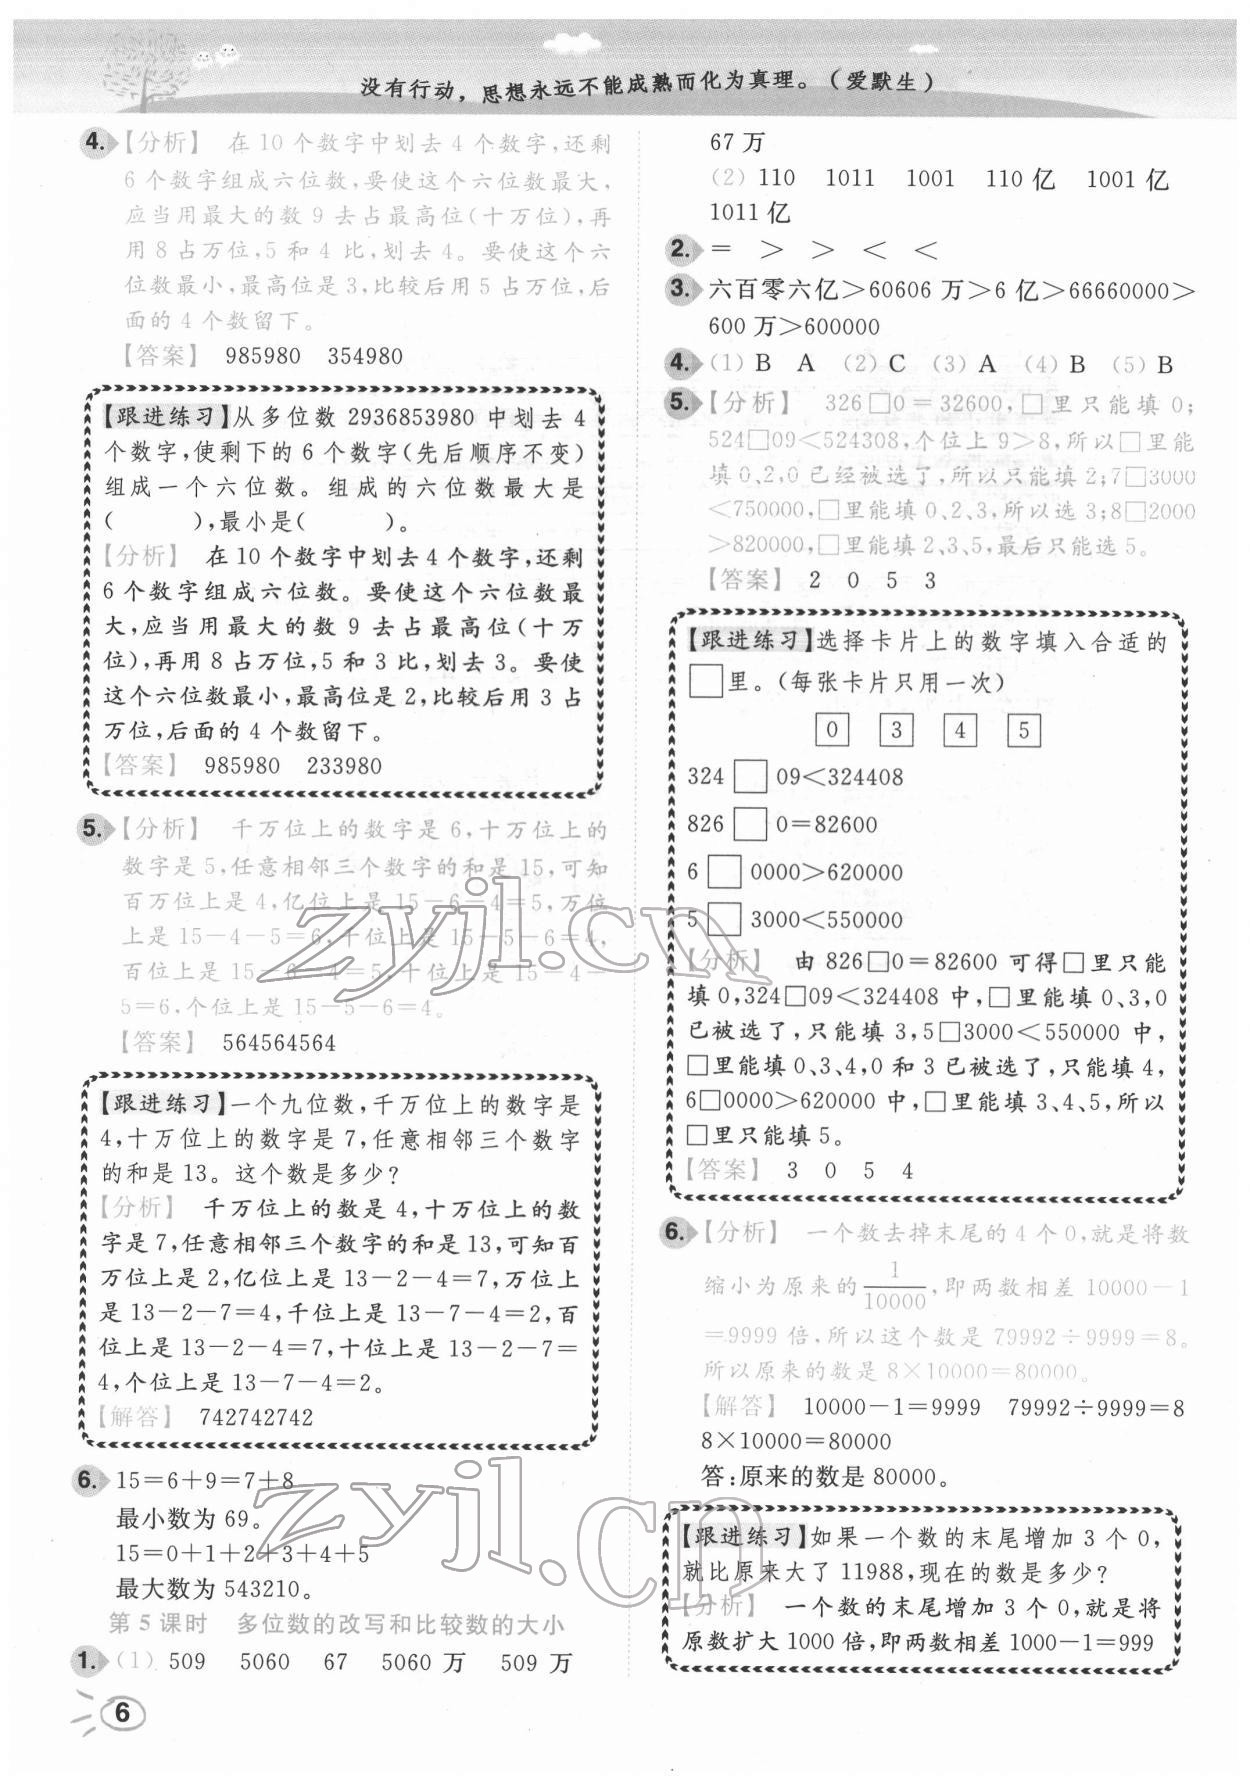 没有行动，思想永远不能成熟而化为真理。（爱默生）
4. 【分析】 在 10 个数字中划去 4 个数字,还剩
6 个数字组成六位数,要使这个六位数最大,
应当用最大的数 9 去占最高位(十万位),再
用 8 占万位,5 和 4 比,划去 4。要使这个六
位数最小,最高位是 3,比较后用 5 占万位,后
面的 4 个数留下。
【答案】 985980 354980
【跟进练习】从多位数 2936853980 中划去 4
个数字,使剩下的 6 个数字(先后顺序不变)
组成一个六位数。组成的六位数最大是
( ),最小是( )。
【分析】 在 10 个数字中划去 4 个数字,还剩
6 个数字组成六位数。要使这个六位数最
大,应当用最大的数 9 去占最高位(十万
位),再用 8 占万位,5 和 3 比,划去 3。要使
这个六位数最小,最高位是 2,比较后用 3 占
万位,后面的 4 个数留下。
【答案】 985980 233980
5. 【分析】 千万位上的数字是 6,十万位上的
数字是 5,任意相邻三个数字的和是 15,可知
百万位上是 4,亿位上是 15－6－4＝5,万位
上是 15－4－5＝6,千位上是 15－5－6＝4,
百位上是 15－6－4＝5,十位上是 15－4－
5＝6,个位上是 15－5－6＝4。
【答案】 564564564
【跟进练习】一个九位数,千万位上的数字是
4,十万位上的数字是 7,任意相邻三个数字
的和是 13。这个数是多少?
【分析】 千万位上的数是 4,十万位上的数
字是 7,任意相邻三个数字的和是 13,可知百
万位上是 2,亿位上是 13－2－4＝7,万位上
是 13－2－7＝4,千位上是 13－7－4＝2,百
位上是 13－2－4＝7,十位上是 13－2－7＝
4,个位上是 13－7－4＝2。
【解答】 742742742
6. 15＝6＋9＝7＋8
最小数为 69。
15＝0＋1＋2＋3＋4＋5
最大数为 543210。
第 5 课时 多位数的改写和比较数的大小
1. (1) 509 5060 67 5060 万 509 万
6
67 万
(2) 110 1011 1001 110 亿 1001 亿
1011 亿
2. ＝ ＞ ＞ ＜ ＜
3. 六百零六亿＞60606 万＞6 亿＞66660000＞
600 万＞600000
4. (1) B A (2) C (3) A (4) B (5) B
5. 【分析】 326□0＝32600,□里只能填 0;
524□09＜524308,个位上 9＞8,所以□里能
填 0、2,0 已经被选了,所以只能填 2;7□3000
＜750000,□里能填 0、2、3,所以选 3;8□2000
＞820000,□里能填 2、3、5,最后只能选 5。
【答案】 2 0 5 3
【跟进练习】选择卡片上的数字填入合适的
□里。(每张卡片只用一次)
0 3 4 5
324□09＜324408
826□0＝82600
6□0000＞620000
5□3000＜550000
【分析】 由 826□0＝82600 可得□里只能
填 0,324□09＜324408 中,□里能填 0、3,0
已被选了,只能填 3,5□3000＜550000 中,
□里能填 0、3、4,0 和 3 已被选了,只能填 4,
6□0000＞620000 中,□里能填 3、4、5,所以
□里只能填 5。
【答案】 3 0 5 4
6. 【分析】 一个数去掉末尾的 4 个 0,就是将数
缩小为原来的 1/10000,即两数相差 10000－1
＝9999 倍,所以这个数是 79992÷9999＝8。
所以原来的数是 8×10000＝80000。
【解答】 10000－1＝9999 79992÷9999＝8
8×10000＝80000
答:原来的数是 80000。
【跟进练习】如果一个数的末尾增加 3 个 0,
就比原来大了 11988,现在的数是多少?
【分析】 一个数的末尾增加 3 个 0,就是将
原数扩大 1000 倍,即两数相差 1000－1＝999
zyjl.cn
zyjl.cn